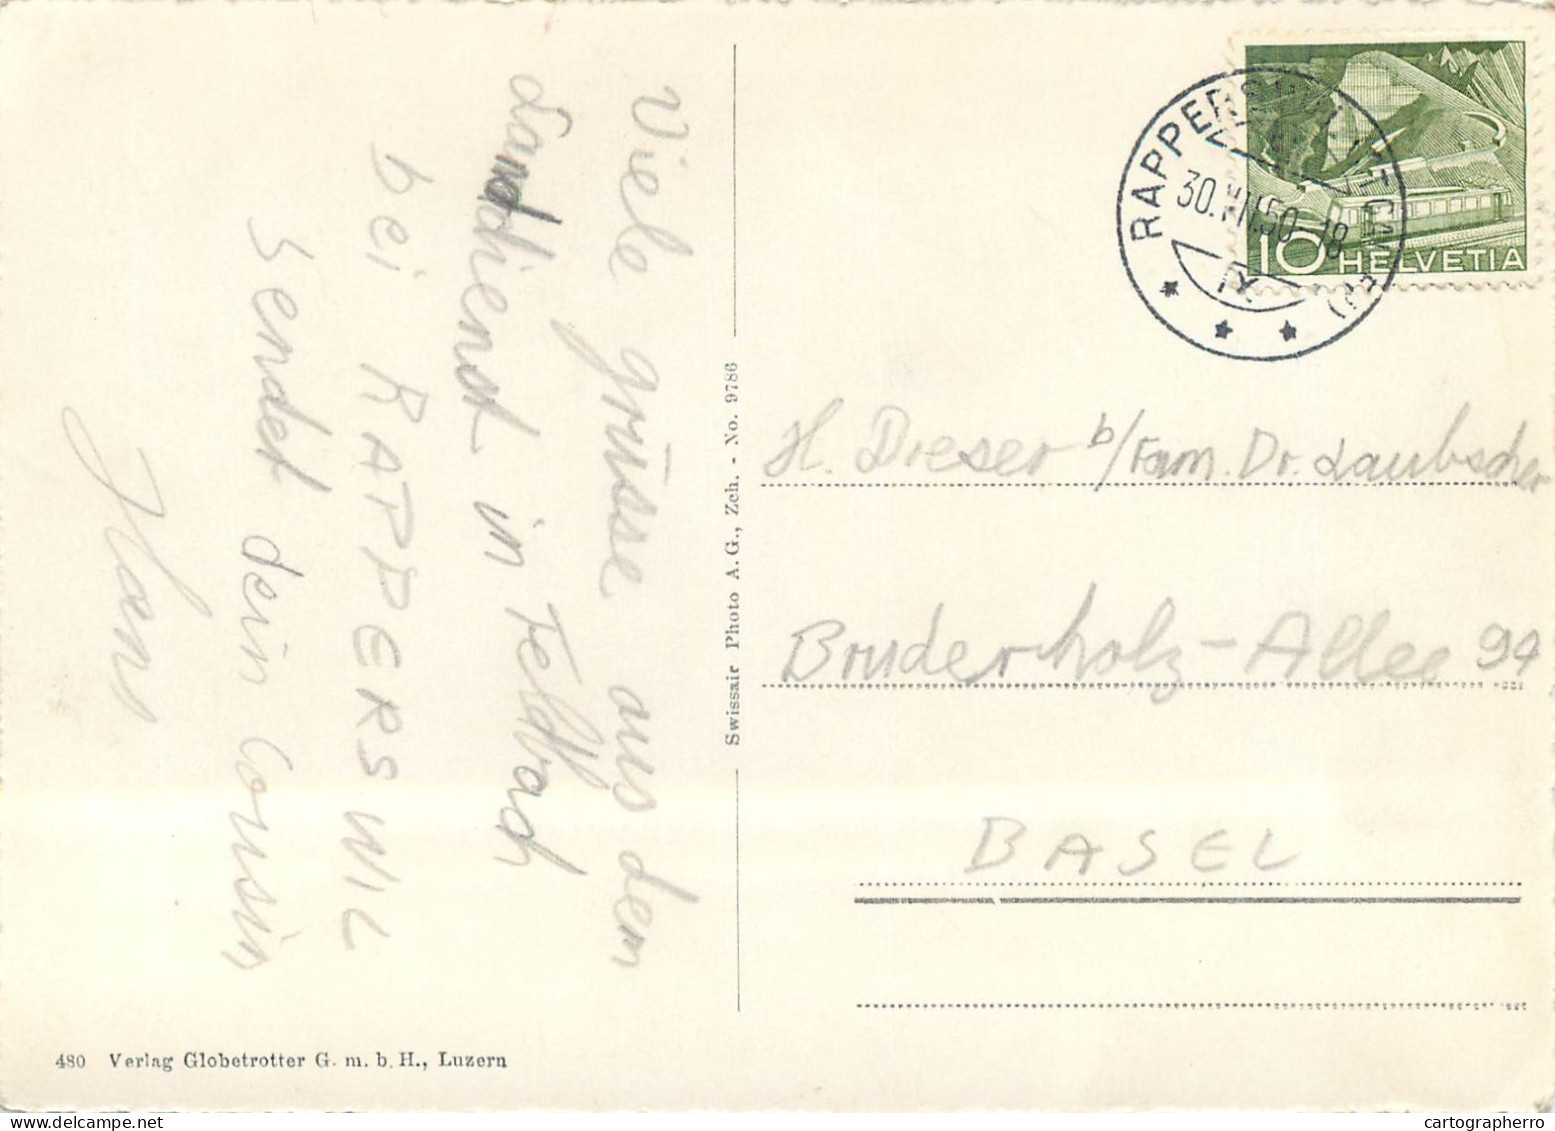 Viele grüsse aus dem
Landdienst in Feldbach
bei RAPPERSWIL
Sendet dein Cousin
Hans
Swissair Photo A. G., Zch. - No. 9786
480 Verlag Globetrotter G. m. b. H., Luzern
RAPPERSWIL (ST. GALLEN)
30.VII.50-18
IX
10 HELVETIA
H. Dreser b/Fam. Dr. Laubscher
Bruderholz-Allee 94
BASEL
cartographerro